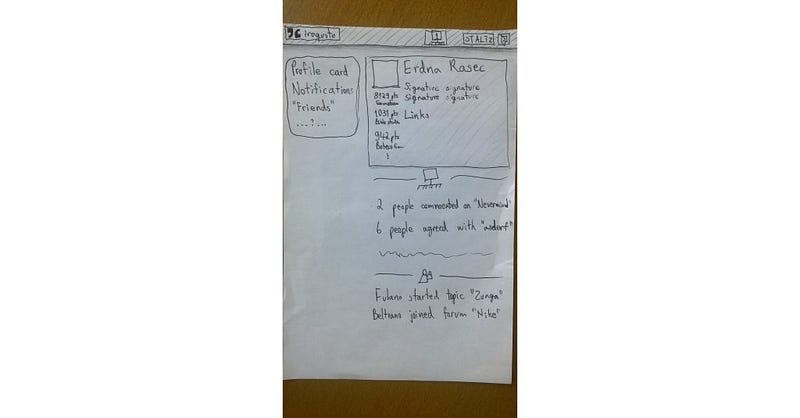 Iroquote
1
STALTZ
Profile card
Notifications
"Friends"
...?...
Erdna Rasec
Signature signature
Signature signature
8129 pts
1031 pts
Links
942 pts
2 people commented on "Nevermind"
6 people agreed with "asdorf"
Fulano started topic "Zunga"
Beltrano joined forum "Nike"